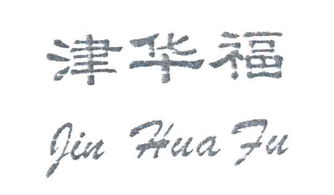 津华福
Jin Hua Fu